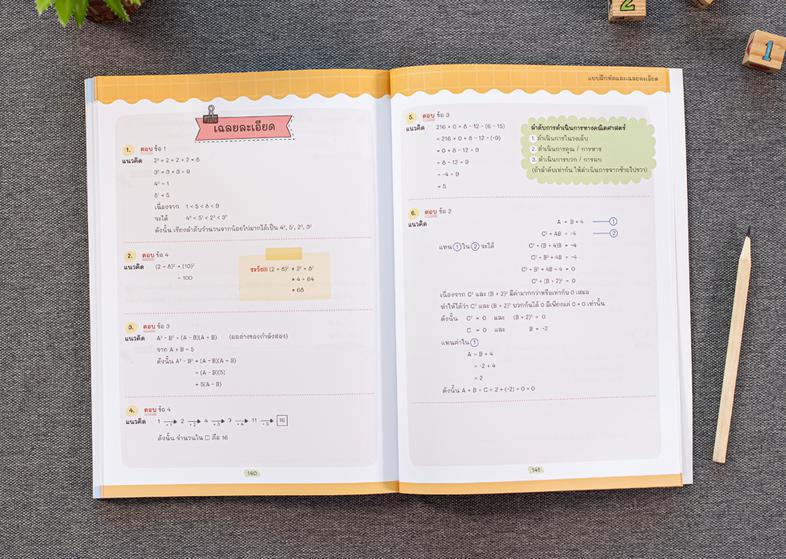 แบบฝึกหัดและเฉลยละเอียด
เฉลยละเอียด
1. ตอบ ข้อ 1
แนวคิด 2³ = 2 × 2 × 2 = 8
3² = 3 × 3 = 9
4⁰ = 1
5¹ = 5
เนื่องจาก 1 < 5 < 8 < 9
จะได้ 4⁰ < 5¹ < 2³ < 3²
ดังนั้น เรียงลำดับจำนวนจากน้อยไปมากได้เป็น 4⁰, 5¹, 2³, 3²
2. ตอบ ข้อ 4
แนวคิด (2 + 8)² = (10)²
= 100
ระวัง!! (2 + 8)² ≠ 2² + 8²
≠ 4 + 64
≠ 68
3. ตอบ ข้อ 3
แนวคิด A² - B² = (A - B)(A + B) (ผลต่างของกำลังสอง)
จาก A + B = 5
ดังนั้น A² - B² = (A - B)(A + B)
= (A - B)(5)
= 5(A - B)
4. ตอบ ข้อ 4
แนวคิด 1 +1 2 +2 4 +3 7 +4 11 +5 16
ดังนั้น จำนวนใน □ คือ 16
140
5. ตอบ ข้อ 3
แนวคิด 216 × 0 + 8 - 12 - (6 - 15)
= 216 × 0 + 8 - 12 - (-9)
= 0 + 8 - 12 + 9
= 8 - 12 + 9
= -4 + 9
= 5
ลำดับการดำเนินการทางคณิตศาสตร์
1. ดำเนินการในวงเล็บ
2. ดำเนินการคูณ / การหาร
3. ดำเนินการบวก / การลบ
(ถ้าลำดับเท่ากัน ให้ดำเนินการจากซ้ายไปขวา)
6. ตอบ ข้อ 2
แนวคิด A = B + 4 1
C² + AB = -4 2
แทน 1 ใน 2 จะได้ C² + (B + 4)B = -4
C² + B² + 4B = -4
C² + B² + 4B + 4 = 0
C² + (B + 2)² = 0
เนื่องจาก C² และ (B + 2)² มีค่ามากกว่าหรือเท่ากับ 0 เสมอ
ทำให้ได้ว่า C² และ (B + 2)² บวกกันได้ 0 มีเพียงแค่ 0 + 0 เท่านั้น
ดังนั้น C² = 0 และ (B + 2)² = 0
C = 0 และ B = -2
แทนค่าใน 1
A = B + 4
= -2 + 4
= 2
ดังนั้น A + B + C = 2 + (-2) + 0 = 0
141
2
1